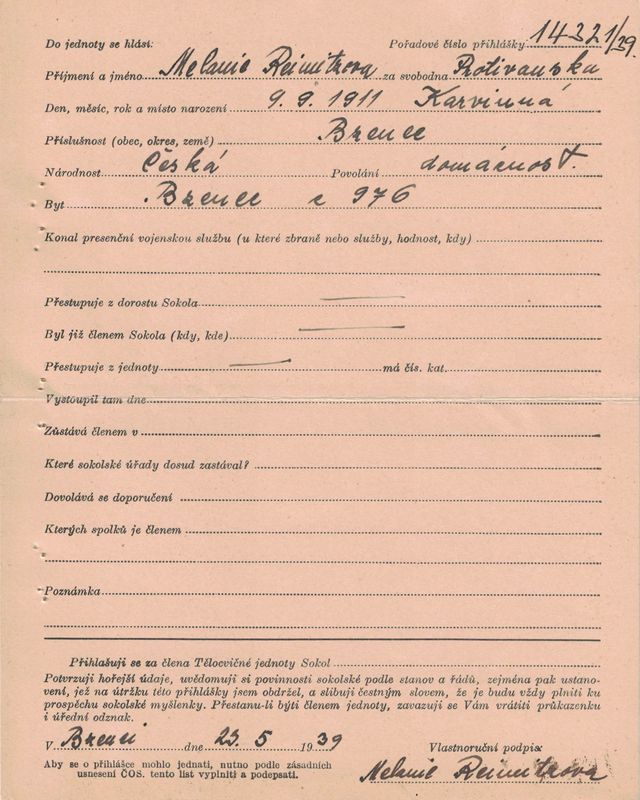 14321/39.
Do jednoty se hlásí: Pořadové číslo přihlášky
Příjmení a jméno Melanie Reimitzova za svobodna Rotivanska
Den, měsíc, rok a místo narození 9. 9. 1911 Karvinná
Příslušnost (obec, okres, země) Bzenec
Národnost Česká Povolání domácnost.
Byt Bzenec č 976
Konal presenční vojenskou službu (u které zbraně nebo služby, hodnost, kdy)
Přestupuje z dorostu Sokola
Byl již členem Sokola (kdy, kde)
Přestupuje z jednoty má čís. kat.
Vystoupil tam dne
Zůstává členem v
Které sokolské úřady dosud zastával?
Dovolává se doporučení
Kterých spolků je členem
Poznámka
Přihlašuji se za člena Tělocvičné jednoty Sokol
Potvrzuji hořejší údaje, uvědomuji si povinnosti sokolské podle stanov a řádů, zejména pak ustano-
vení, jež na útržku této přihlášky jsem obdržel, a slibuji čestným slovem, že je budu vždy plniti ku
prospěchu sokolské myšlenky. Přestanu-li býti členem jednoty, zavazuji se Vám vrátiti průkazenku
i úřední odznak.
V Bzenci dne 23. 5 1939 Vlastnoruční podpis:
Aby se o přihlášce mohlo jednati, nutno podle zásadních
usnesení ČOS. tento list vyplniti a podepsati.
Melanie Reimitzova